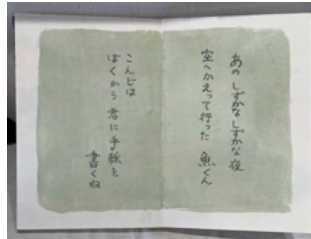 あの しずかなしずかな夜
空へかえって行った 魚くん
こんどは
ぼくから 君に手紙を
書くね